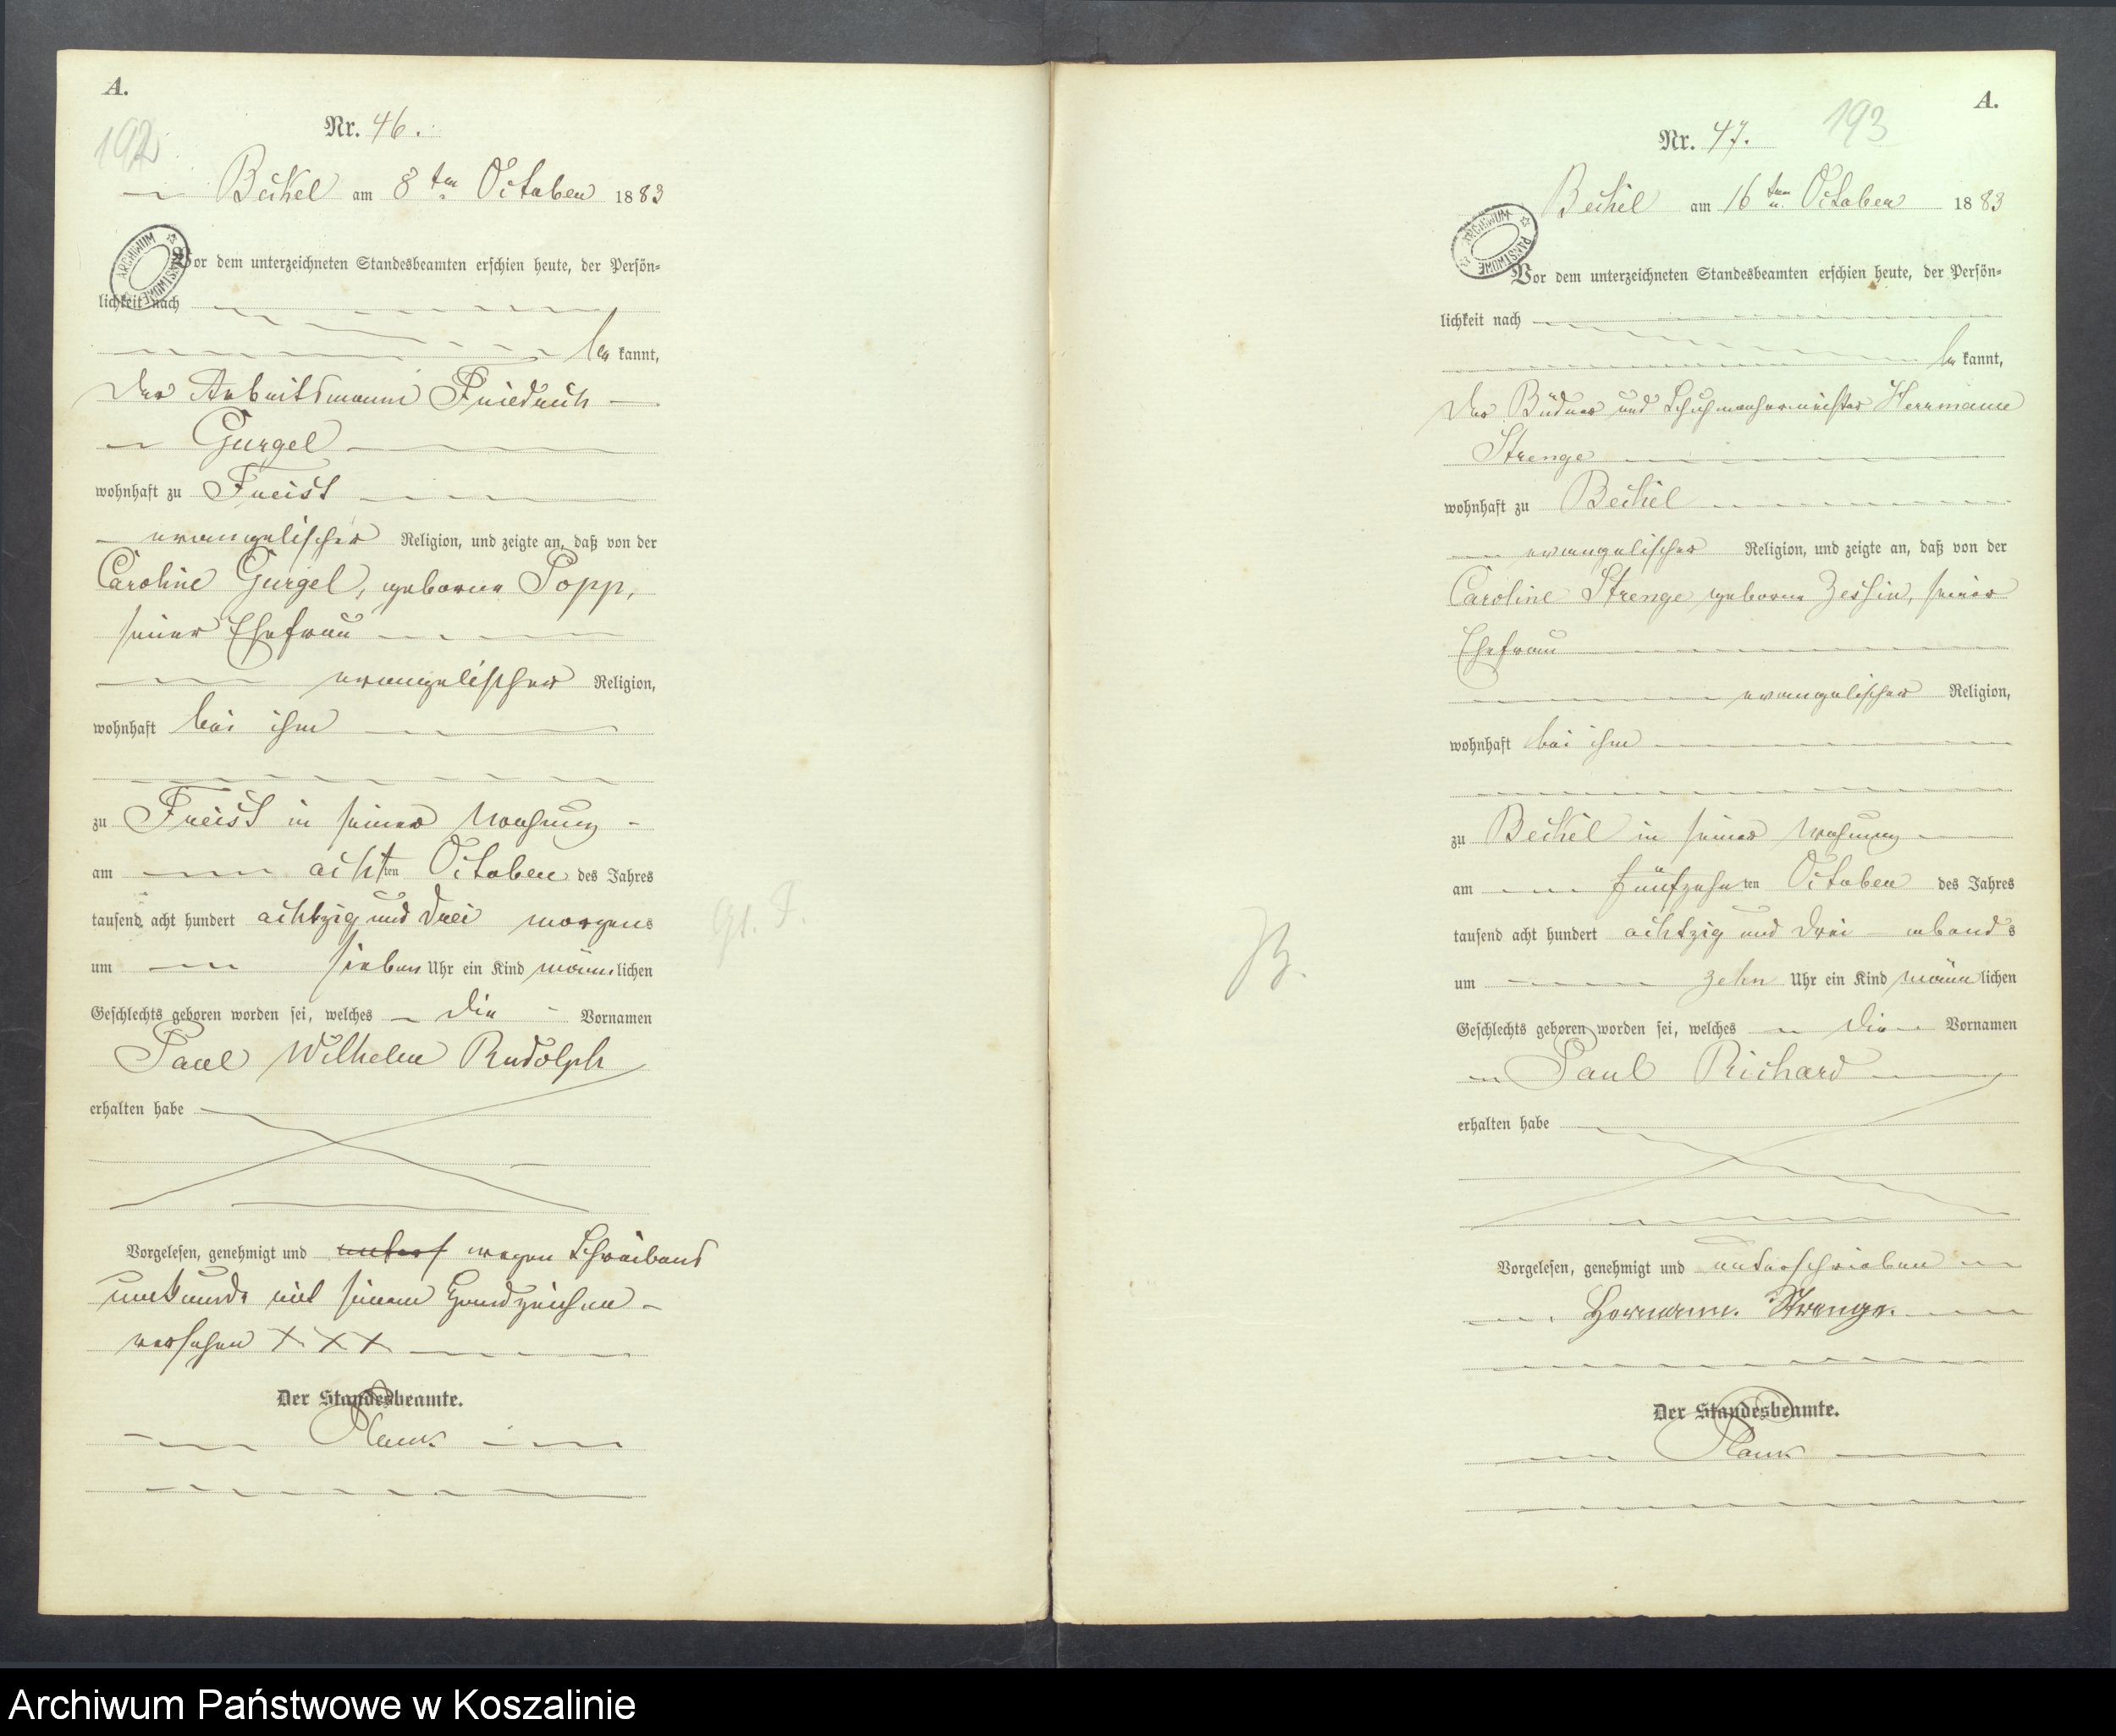 A.
192
Nr. 46.
Beckel am 8ten October 1883
Vor dem unterzeichneten Standesbeamten erschien heute, der Persön=
lichkeit nach
be kannt,
der Arbeitsmann Friedrich
Gurgel
wohnhaft zu Freist
evangelischer Religion, und zeigte an, daß von der
Caroline Gurgel, geborne Popp,
seiner Ehefrau
evangelischer Religion,
wohnhaft bei ihm
zu Freist in seiner Wohnung
am achtten October des Jahres
tausend acht hundert achtzig und drei morgens
um sieben Uhr ein Kind männlichen
Geschlechts geboren worden sei, welches die Vornamen
Paul Wilhelm Rudolph
erhalten habe
Vorgelesen, genehmigt und untersch wegen Schreibens
unkunde mit seinem Handzeichen
versehen XXX
Der Standesbeamte.
ARCHIWUM PAŃSTWOWE
A.
193
Nr. 47.
Beckel am 16ten October 1883
Vor dem unterzeichneten Standesbeamten erschien heute, der Persön=
lichkeit nach
be kannt,
der Büdner und Schuhmachermeister Herrmann
Strenge
wohnhaft zu Beckel
evangelischer Religion, und zeigte an, daß von der
Caroline Strenge geborne Zessin, seiner
Ehefrau
evangelischer Religion,
wohnhaft bei ihm
zu Beckel in seiner Wohnung
am fünfzehnten October des Jahres
tausend acht hundert achtzig und drei abends
um zehn Uhr ein Kind männlichen
Geschlechts geboren worden sei, welches die Vornamen
Paul Richard
erhalten habe
Vorgelesen, genehmigt und unterschrieben
Hermann Strenge.
Der Standesbeamte.
ARCHIWUM PAŃSTWOWE
Archiwum Państwowe w Koszalinie